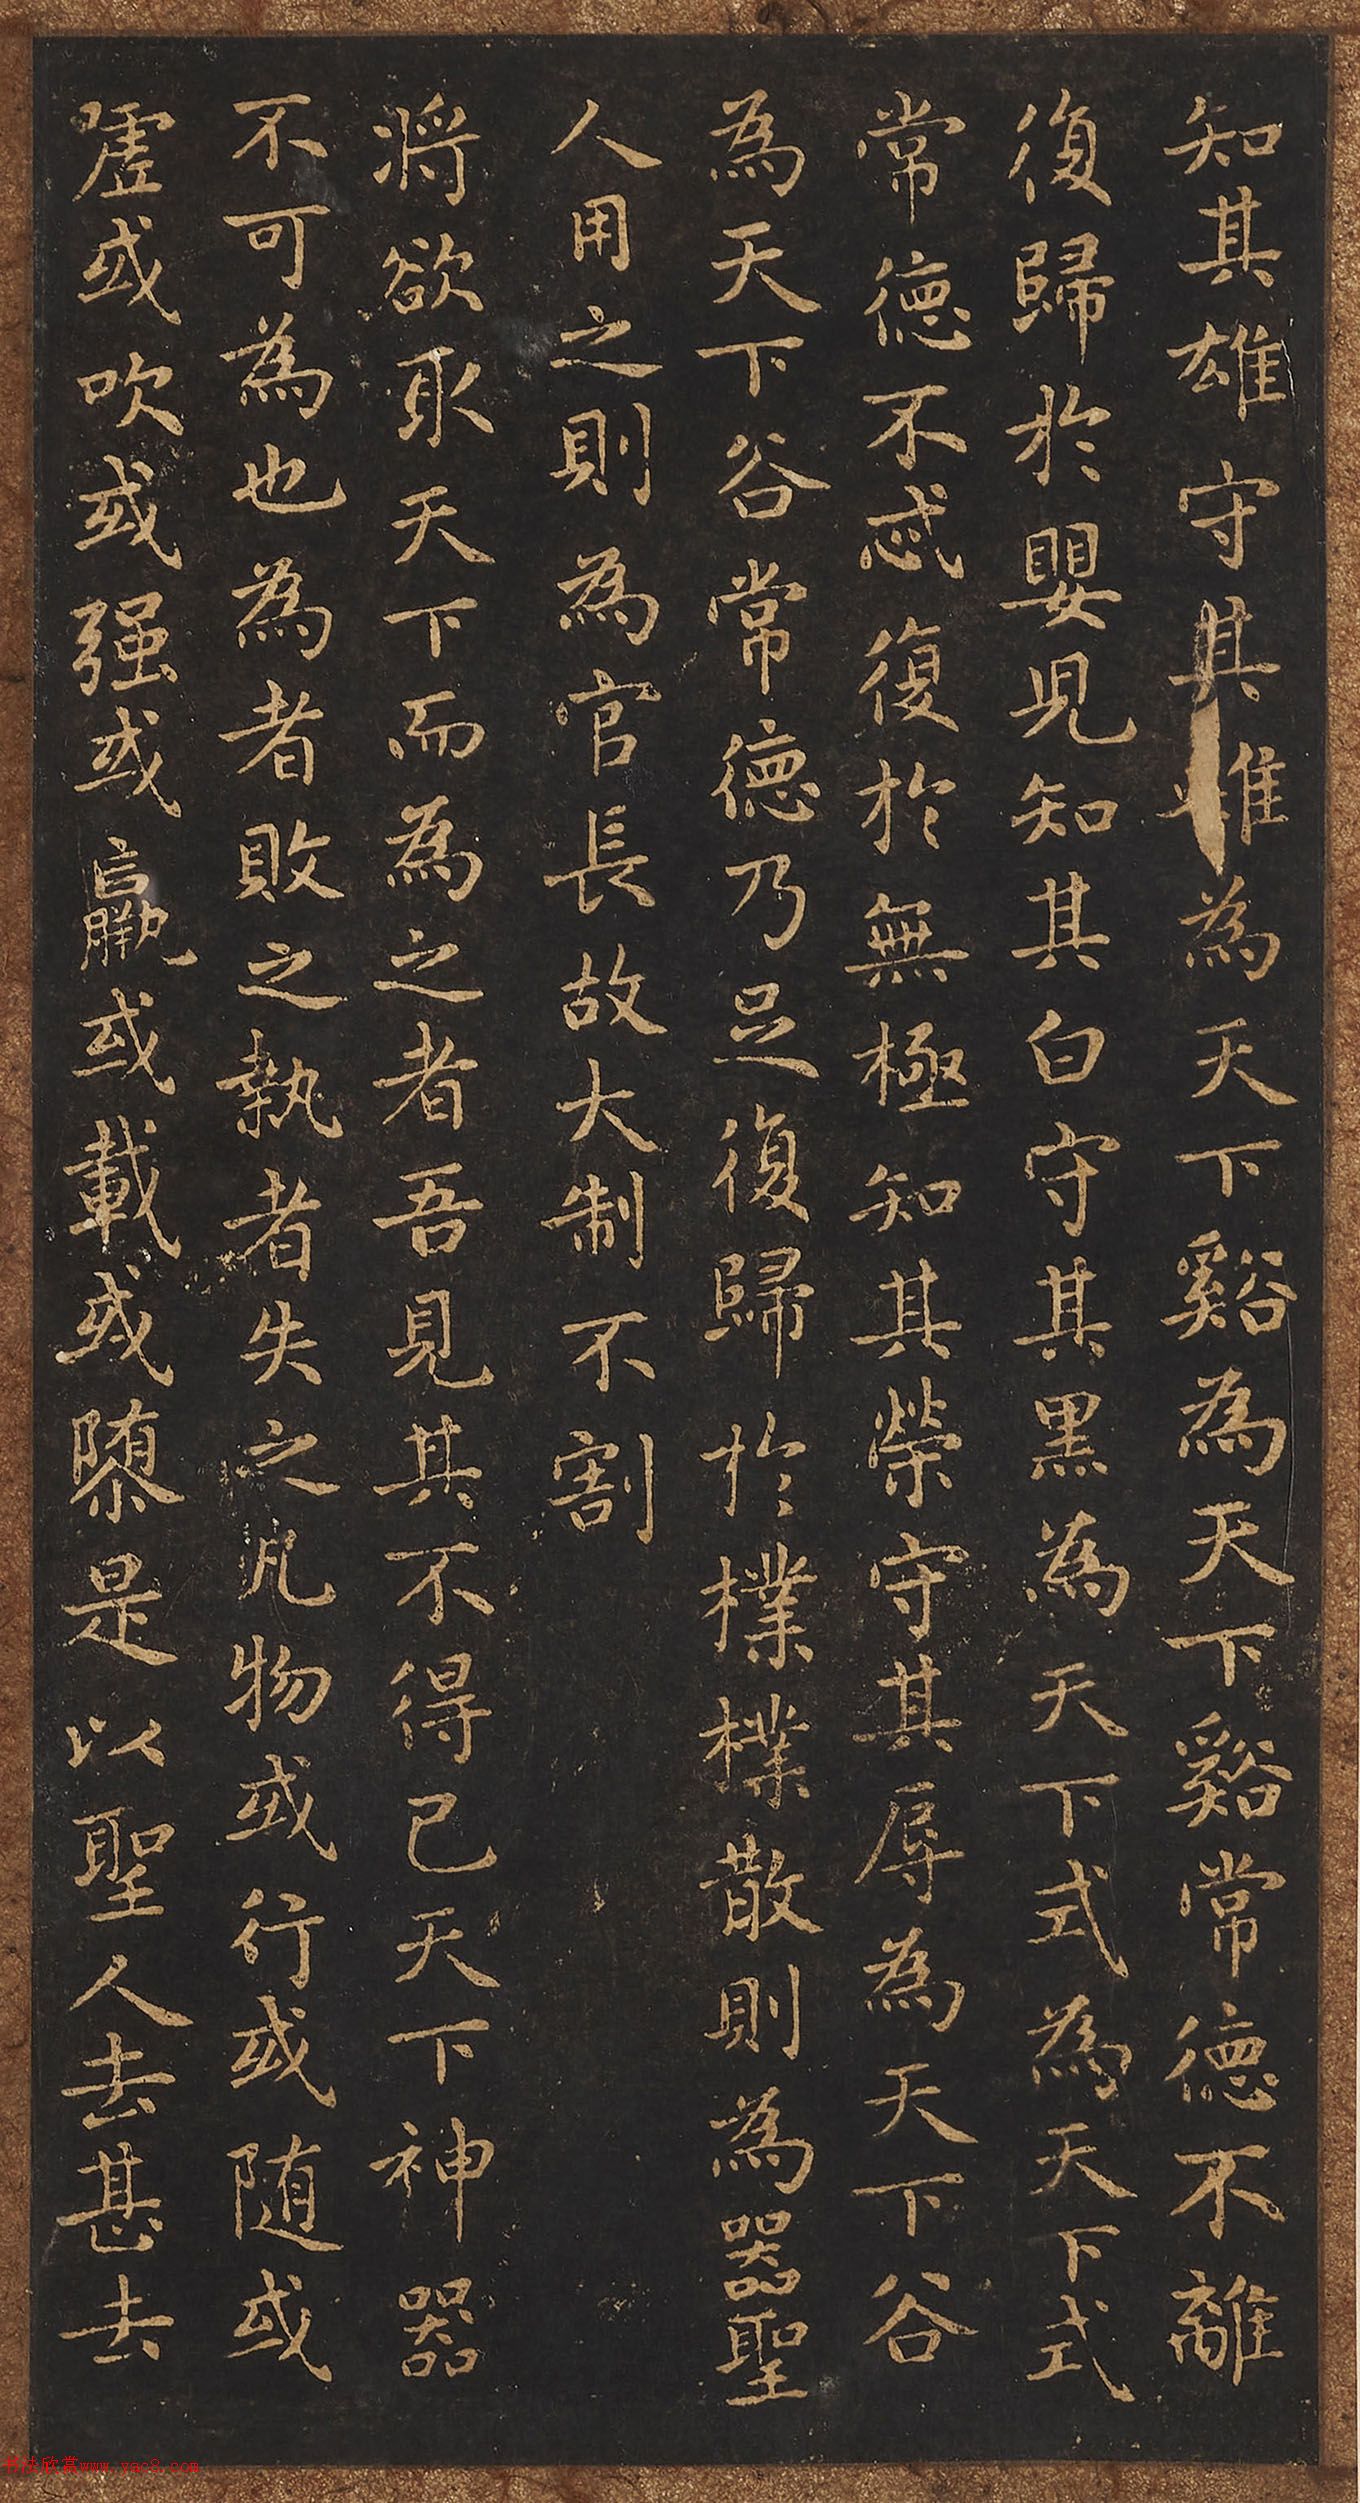 知其雄守其雌為天下谿為天下谿常德不離
復歸於嬰児知其白守其黒為天下式為天下式
常德不忒復於無極知其榮守其辱為天下谷
為天下谷常德乃足復歸於樸樸散則為器聖
人用之則為官長故大制不割
将欲取天下而為之者吾見其不得已天下神器
不可為也為者敗之執者失之凡物或行或随或
嘘或吹或强或羸或載或隳是以聖人去甚去
书法欣赏www.yac8.com